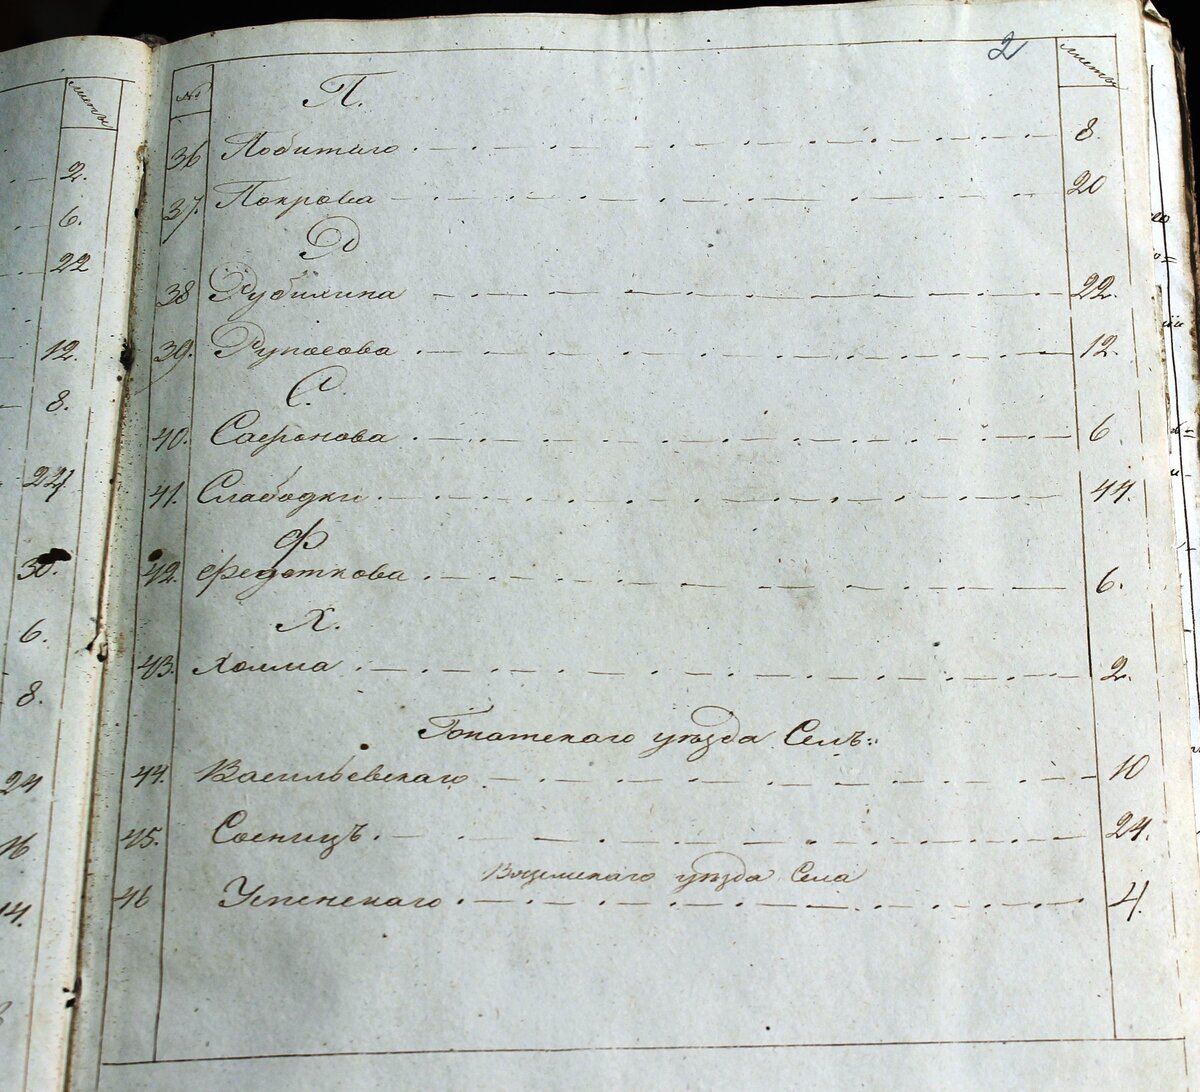 листы
2.
6.
22
12.
8.
24
30.
6.
8.
24
16
14.
2
№ листы
П.
36 Побитаго 8.
37. Покрова 20
Р
38 Рубихина 22.
39. Рупосова 12.
С.
40. Сафонова 6
41. Слабодки 44.
Ф
42. Федоткова 6.
Х.
43. Холма 2.
уѣзда Селъ:
44. Васильевскаго 10
45. Сосницъ 24.
Вяземскаго уѣзда Села
46 Успенскаго 4.